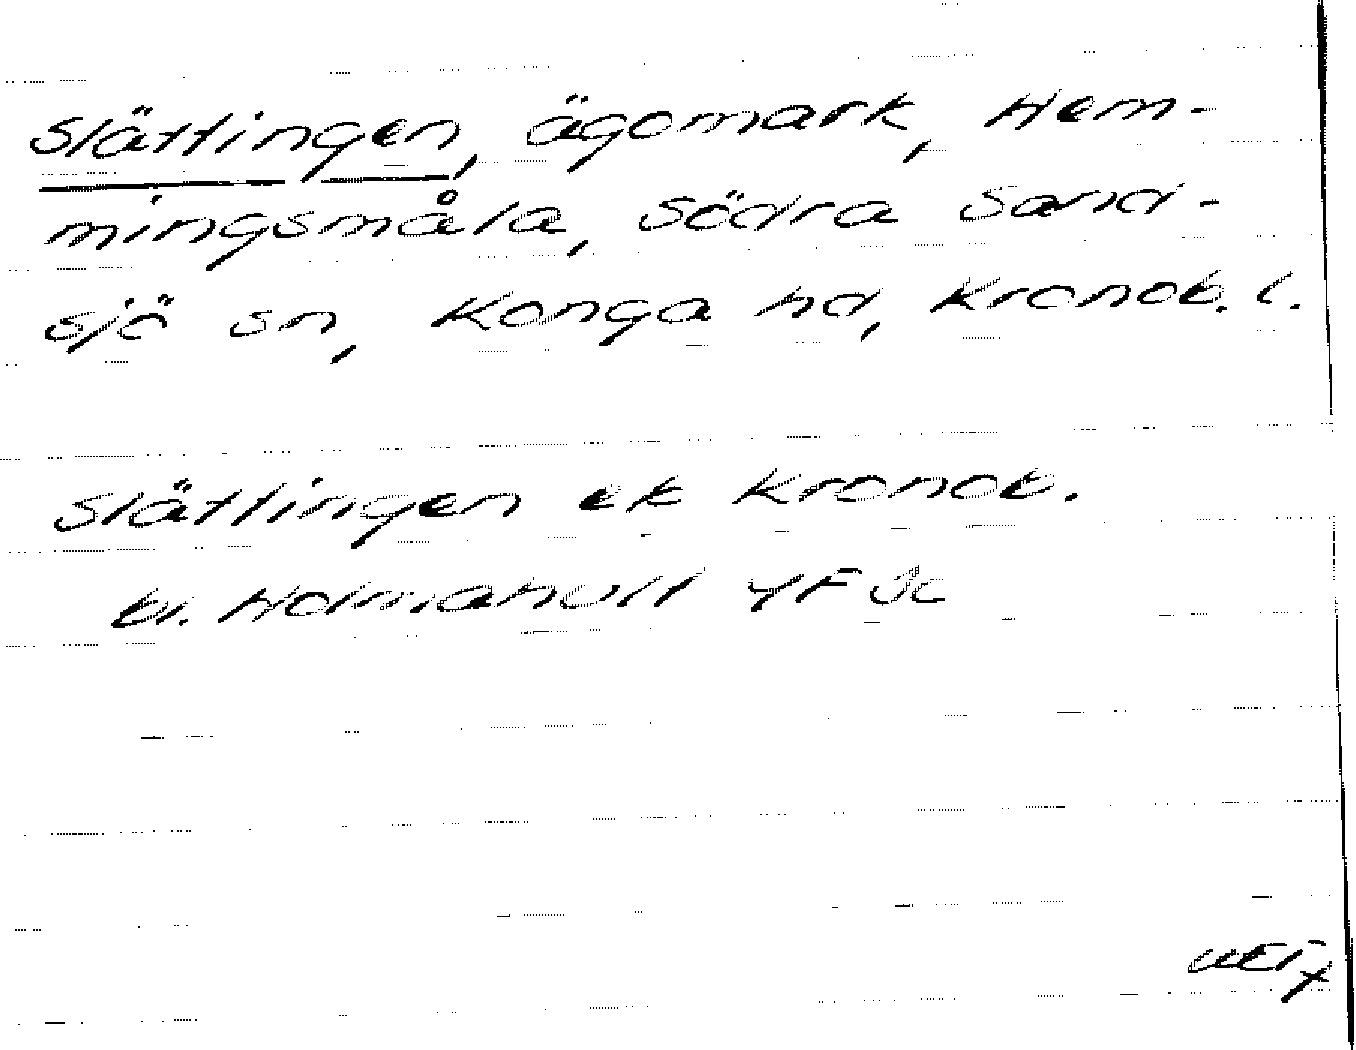 Slättingen, ägomark, Hem-
mingsmåla, Södra Sand-
sjö sn, Konga hd, Kronob. l.
Slättingen ek Kronob.
bl. Holmahult 4F